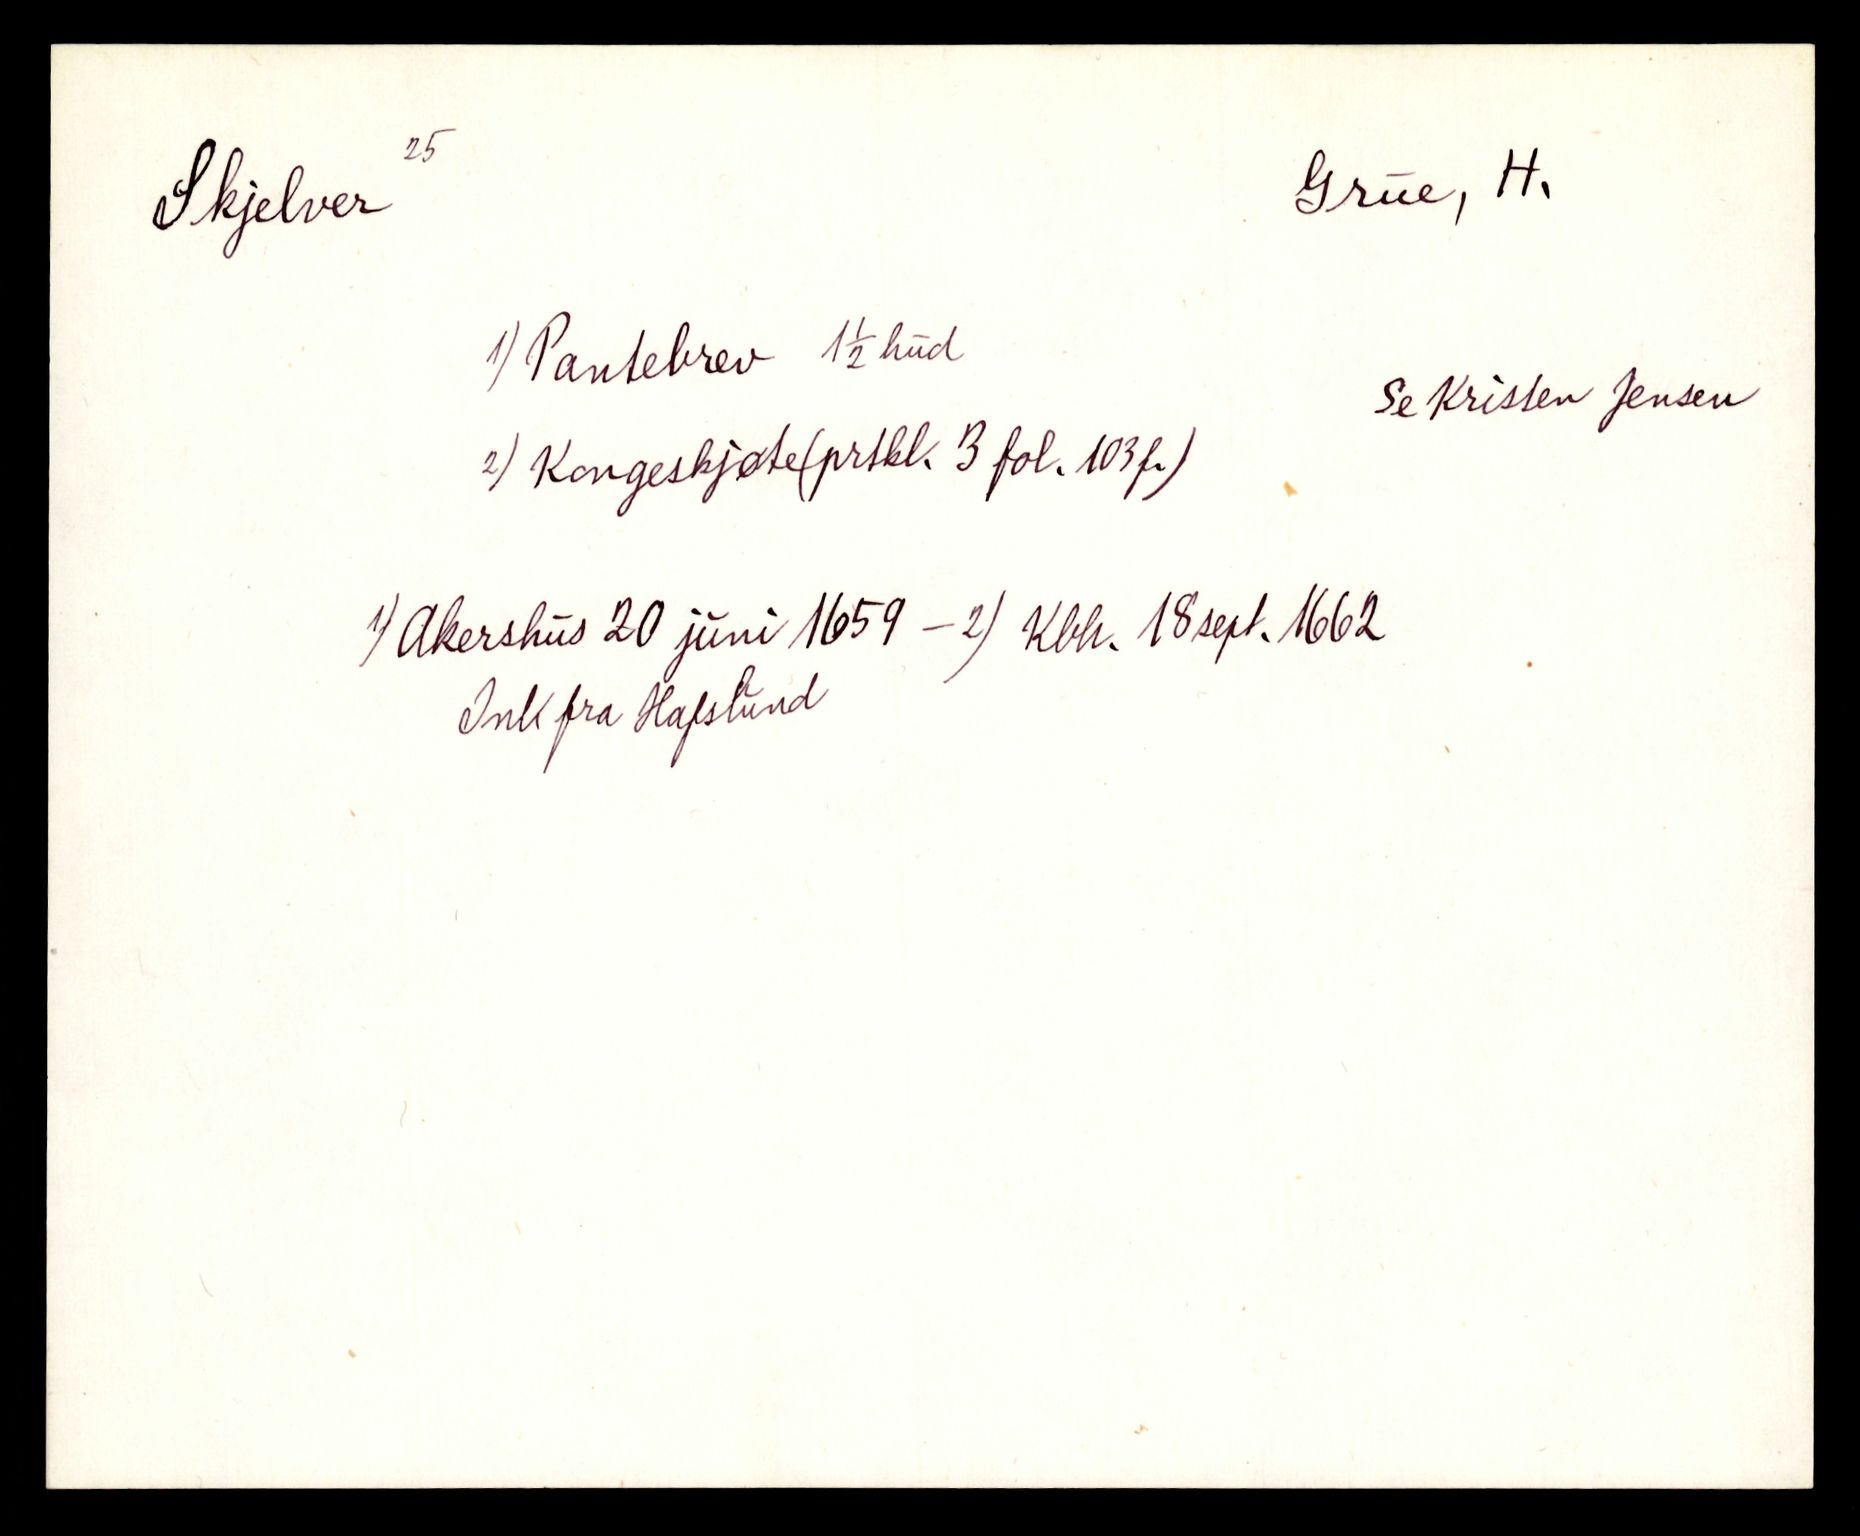 Skjelver 25
Grue, H.
1) Pantebrev 1 1/2 hud
Se Kristen Jensen
2) Kongeskjøte (prtkl. B fol. 103 f.)
1) Akershus 20 juni 1659 – 2) Kbh. 18 sept. 1662
Ink fra Hafslund